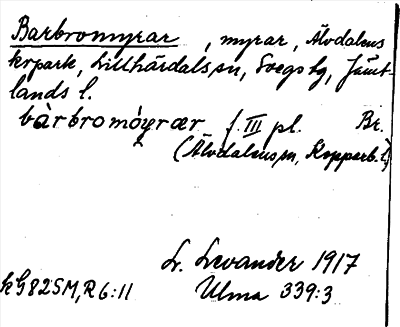 Barbromyrar, myrar, Älvdalens
krpark, Lillhärdals sn, Svegs tg, Jämt-
lands l.
bàrbromóyrær f. III pl. Br.
(Älvdalens sn, Kopparb. l)
L. Levander 1917
kG82SM, R6:11 Ulma 339:3